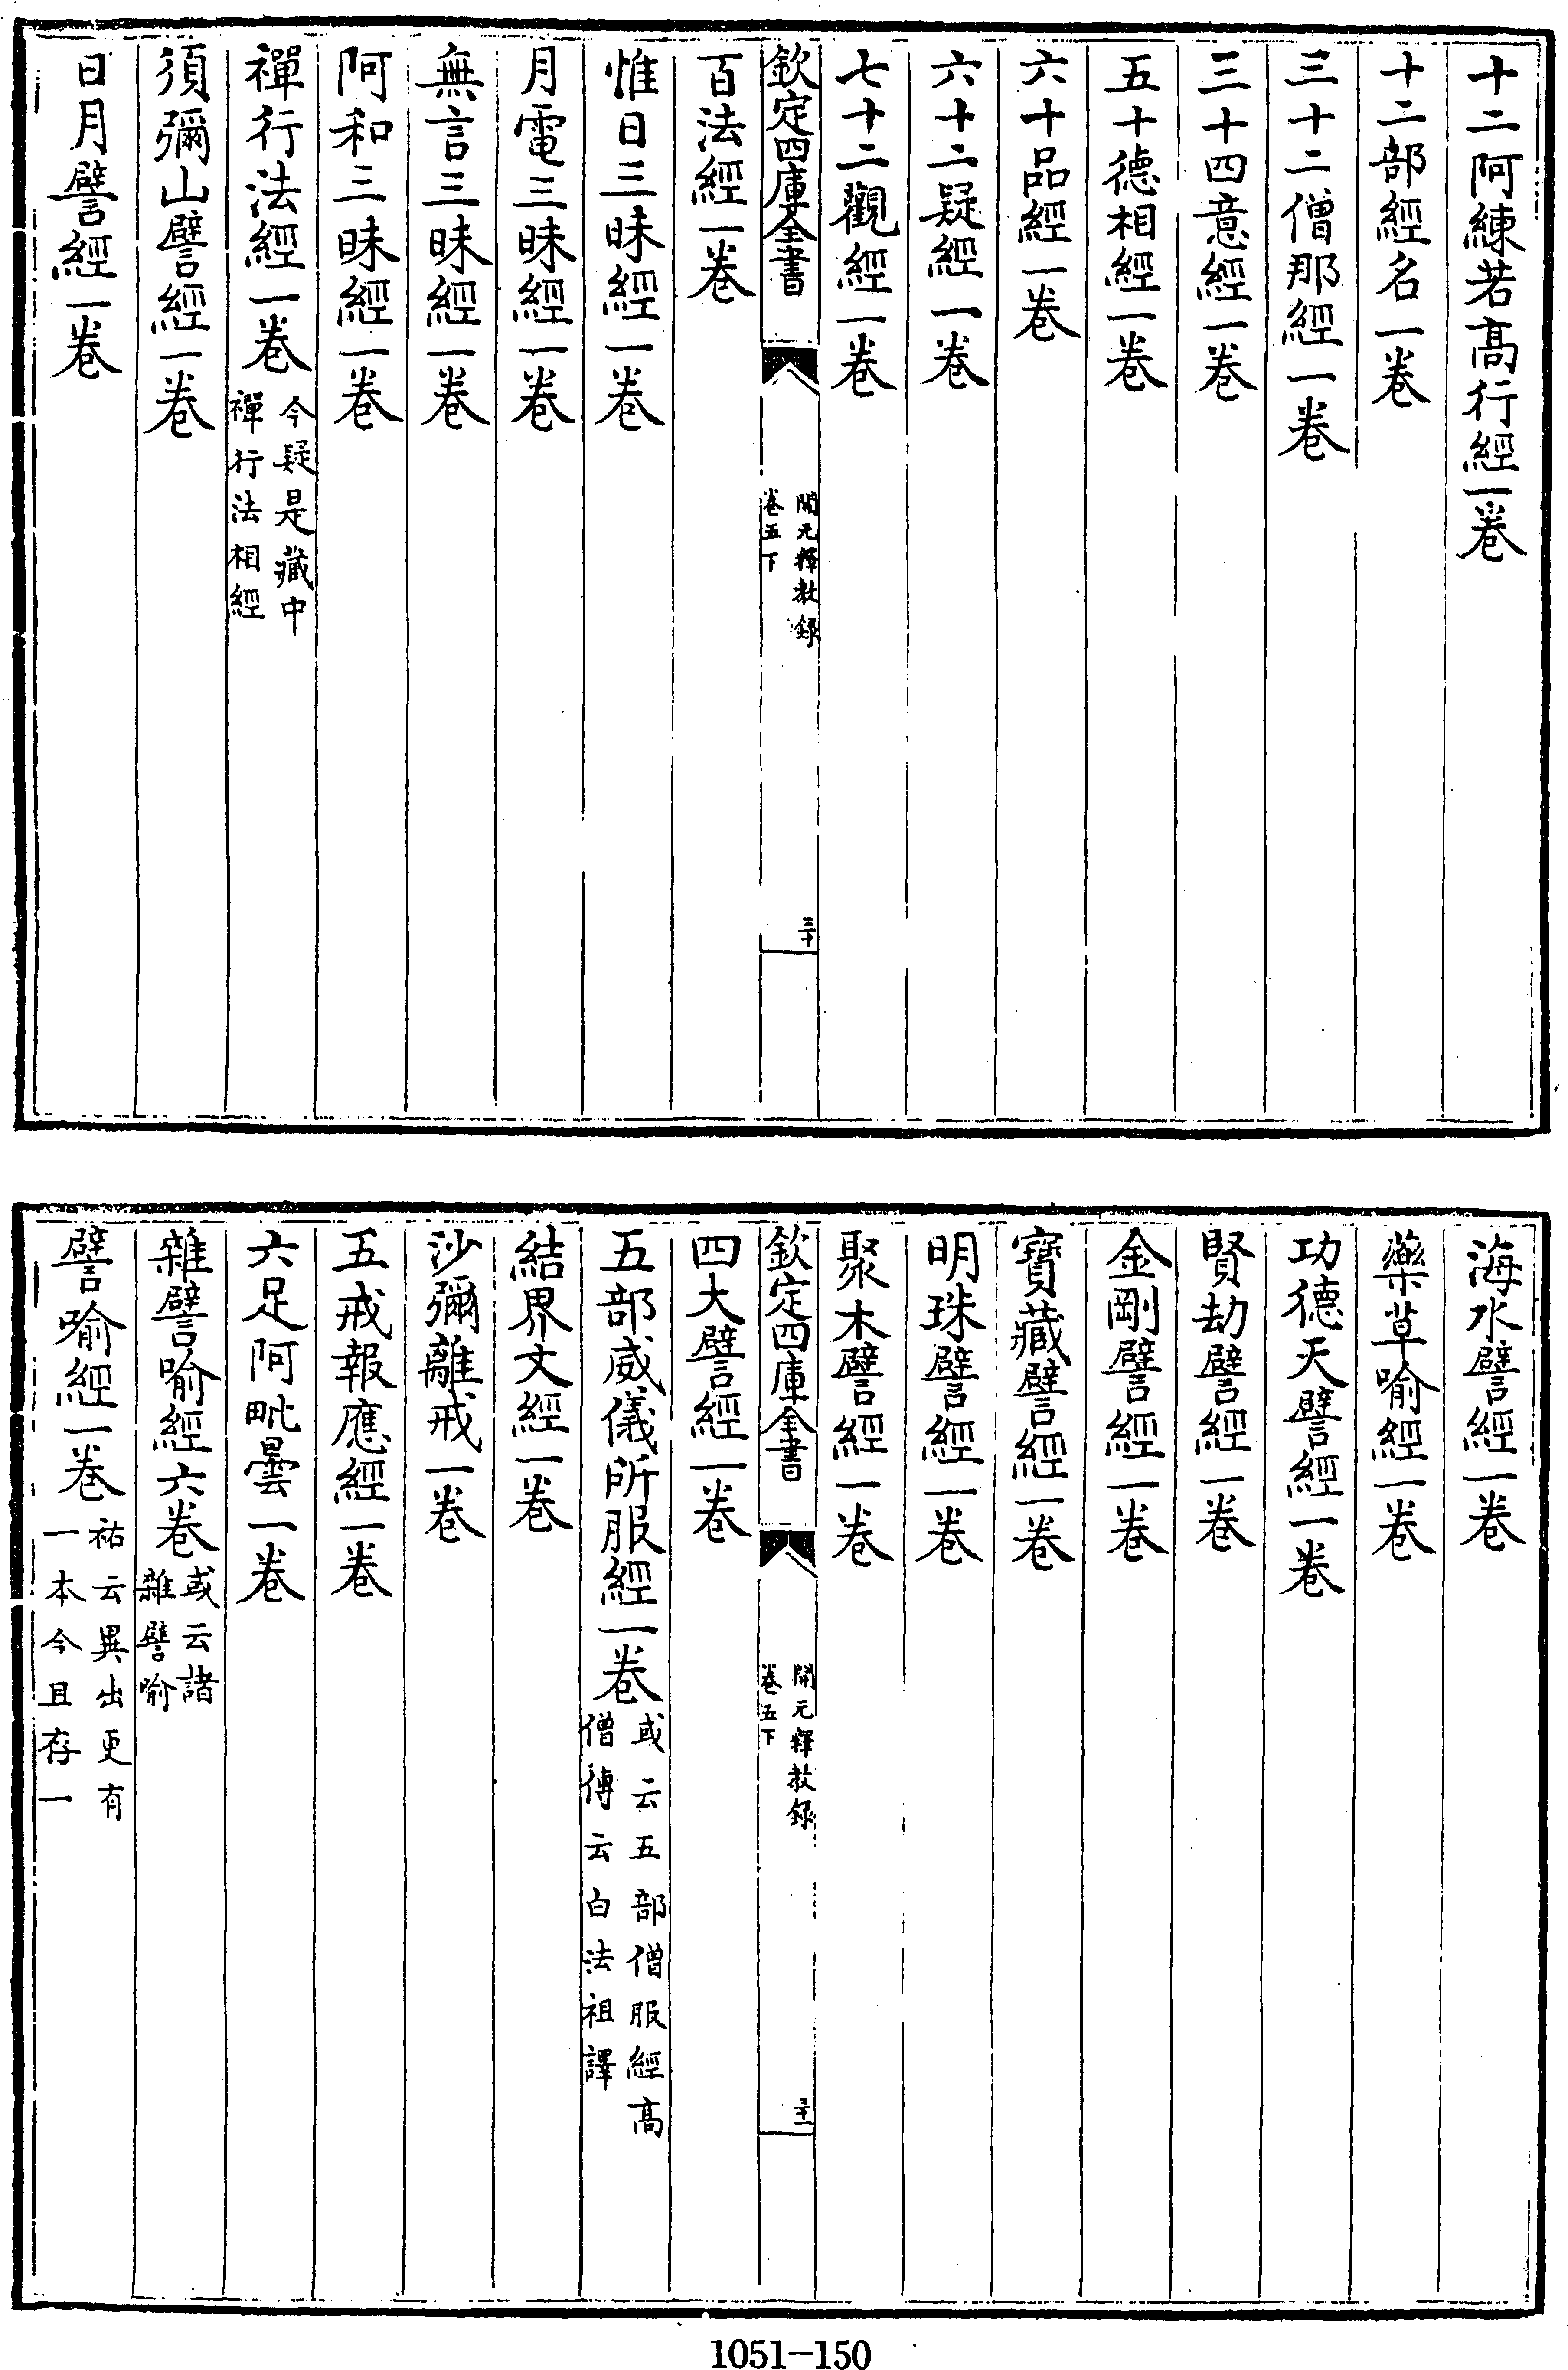 十二阿練若髙行經一卷
十二部經名一卷
三十二僧那經一卷
三十四意經一卷
五十德相經一卷
六十品經一卷
六十二疑經一卷
七十二觀經一卷
欽定四庫全書
開元釋教録
卷五下
三十
百法經一卷
惟日三昧經一卷
月電三昧經一卷
無言三昧經一卷
阿和三昧經一卷
禪行法經一卷
今疑是藏中
禪行法相經
須彌山譬經一卷
日月譬經一卷
海水譬經一卷
藥草喻經一卷
功德天譬經一卷
賢劫譬經一卷
金剛譬經一卷
寶藏譬經一卷
明珠譬經一卷
聚木譬經一卷
欽定四庫全書
開元釋教録
卷五下
三十一
四大譬經一卷
五部威儀所服經一卷
或云五部僧服經髙
僧傳云白法祖譯
結界文經一卷
沙彌離戒一卷
五戒報應經一卷
六足阿毗曇一卷
雜譬喻經六卷
或云諸
雜譬喻
譬喻經一卷
祐云異出更有
一本今且存一
1051-150